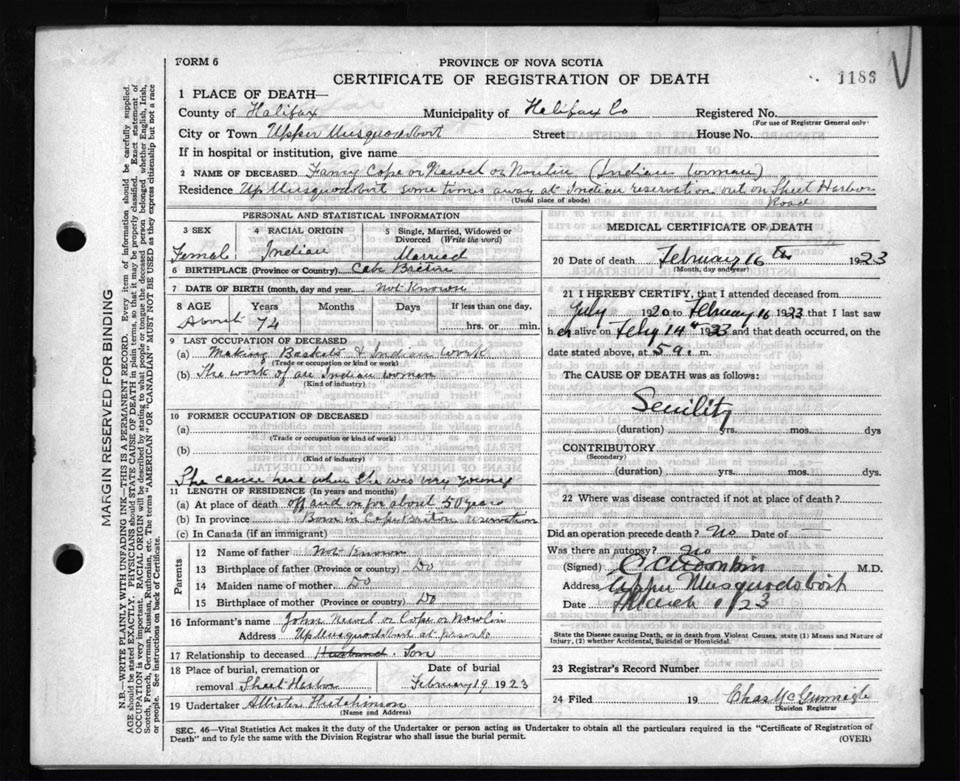 FORM 6
PROVINCE OF NOVA SCOTIA
CERTIFICATE OF REGISTRATION OF DEATH
1186
1 PLACE OF DEATH—
County of Halifax Municipality of Halifax Co Registered No.
(For use of Registrar General only)
City or Town Upper Musquodoboit Street House No.
If in hospital or institution, give name
2 NAME OF DECEASED Fanny Cope or Newel or Noulin (Indian Woman)
Residence Up Musquodoboit some times away at Indian reservation out on Sheet Harbor Road
(Usual place of abode)
PERSONAL AND STATISTICAL INFORMATION
3 SEX
4 RACIAL ORIGIN
5 Single, Married, Widowed or Divorced (Write the word)
Female Indian Married
6 BIRTHPLACE (Province or Country) Cape Breton
7 DATE OF BIRTH (month, day and year) Not Known
8 AGE Years Months Days If less than one day,
About 74 hrs. or min.
9 LAST OCCUPATION OF DECEASED
(a) Making Baskets & Indian Work
(Trade or occupation or kind or work)
(b) The work of an Indian women
(Kind of industry)
10 FORMER OCCUPATION OF DECEASED
(a)
(Trade or occupation or kind of work)
(b)
(Kind of industry)
She came here when she was very young
11 LENGTH OF RESIDENCE (In years and months)
(a) At place of death off and on for about 50 years
(b) In province Born in Cape Breton reservation
(c) In Canada (if an immigrant)
Parents
12 Name of father Not Known
13 Birthplace of father (Province or Country) Do
14 Maiden name of mother Do
15 Birthplace of mother (Province or country) Do
16 Informant's name John Newel or Cope or Nowlin
Address Up Musquodoboit at present
17 Relationship to deceased Husband Son
18 Place of burial, cremation or removal Sheet Harbor
Date of burial
February 19 1923
19 Undertaker Allister Hutchinson
(Name and Address)
MEDICAL CERTIFICATE OF DEATH
20 Date of death February 16th 1923
(Month, day and year)
21 I HEREBY CERTIFY, that I attended deceased from
July 1920 to February 16 1923 that I last saw
h er alive on Feby 14th 1923 and that death occurred, on the
date stated above, at 5 a. m.
The CAUSE OF DEATH was as follows:
Senility
(duration) yrs. mos. dys
CONTRIBUTORY
(Secondary)
(duration) yrs. mos. dys
22 Where was disease contracted if not at place of death?
Did an operation precede death? No Date of
Was there an autopsy? No
(Signed) M.D.
Address Upper Musquodoboit
Date March 1/23
State the Disease causing Death, or in death from Violent Causes, state (1) Means and Nature of Injury, (2) whether Accidental, Suicidal or Homicidal.
23 Registrar's Record Number
24 Filed 19 Chas
Division Registrar
SEC. 46—Vital Statistics Act makes it the duty of the Undertaker or person acting as Undertaker to obtain all the particulars required in the "Certificate of Registration of Death" and to fyle the same with the Division Registrar who shall issue the burial permit.
(OVER)
MARGIN RESERVED FOR BINDING
N.B.—WRITE PLAINLY WITH UNFADING INK—THIS IS A PERMANENT RECORD. Every item of information should be carefully supplied.
AGE should be stated EXACTLY. PHYSICIANS should STATE CAUSE OF DEATH in plain terms, so that it may be properly classified. Exact statement of
OCCUPATION is very important. RACIAL ORIGIN will be described by stating to what people or tongue the deceased person belonged whether English, Irish,
Scotch, French, German, Russian, Ruthenian, etc. The terms "AMERICAN" or "CANADIAN" MUST NOT BE USED as they express citizenship but not a race
or people. See instructions on back of Certificate.